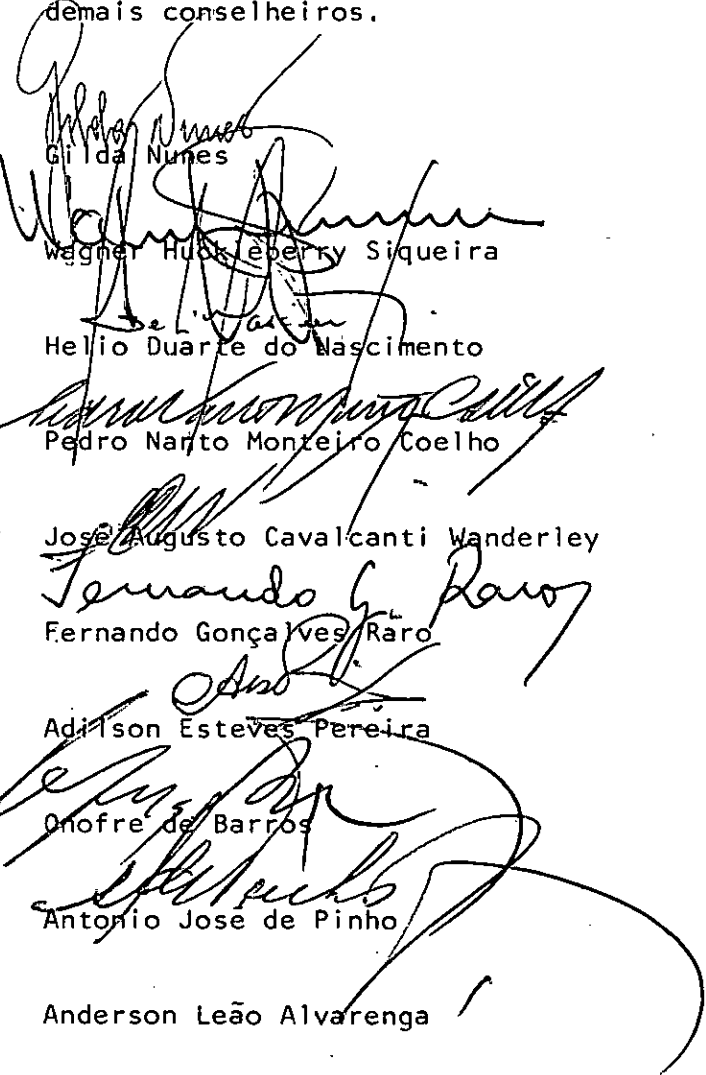 demais conselheiros.
Gilda Nunes
Wagner Huckleberry Siqueira
Helio Duarte do Nascimento
Pedro Nanto Monteiro Coelho
José Augusto Cavalcanti Wanderley
Fernando G. Raro
Fernando Gonçalves Raro
Adilson Esteves Pereira
Onofre de Barros
Antonio José de Pinho
Anderson Leão Alvarenga